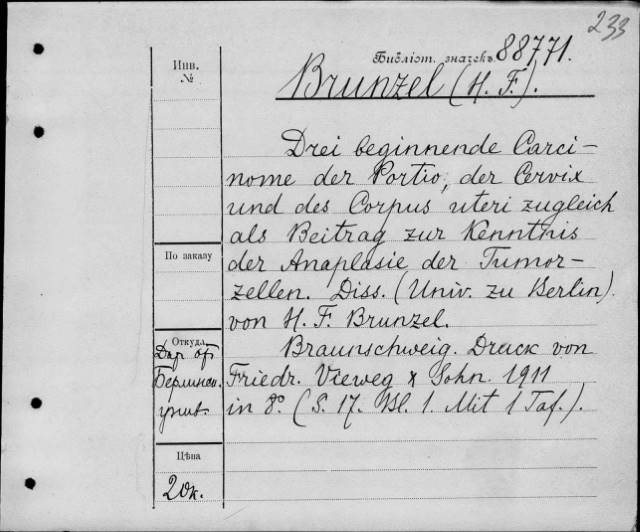 233
Библіот. значекъ 88771.
Инв.
№
Brunzel (H. F.).
Drei beginnende Carci-
nome der Portio, der Cervix
und des Corpus uteri zugleich
als Beitrag zur Kenntnis
По заказу
der Anaplasie der Tumor-
zellen. Diss. (Univ. zu Berlin).
von H. F. Brunzel.
Откуда
Дар от
Берлинск.
унив.
Braunschweig. Druck von
Friedr. Vieweg & Sohn. 1911
in 8º. (S. 17. Bl. 1. Mit 1 Taf.).
Цѣна
20к.